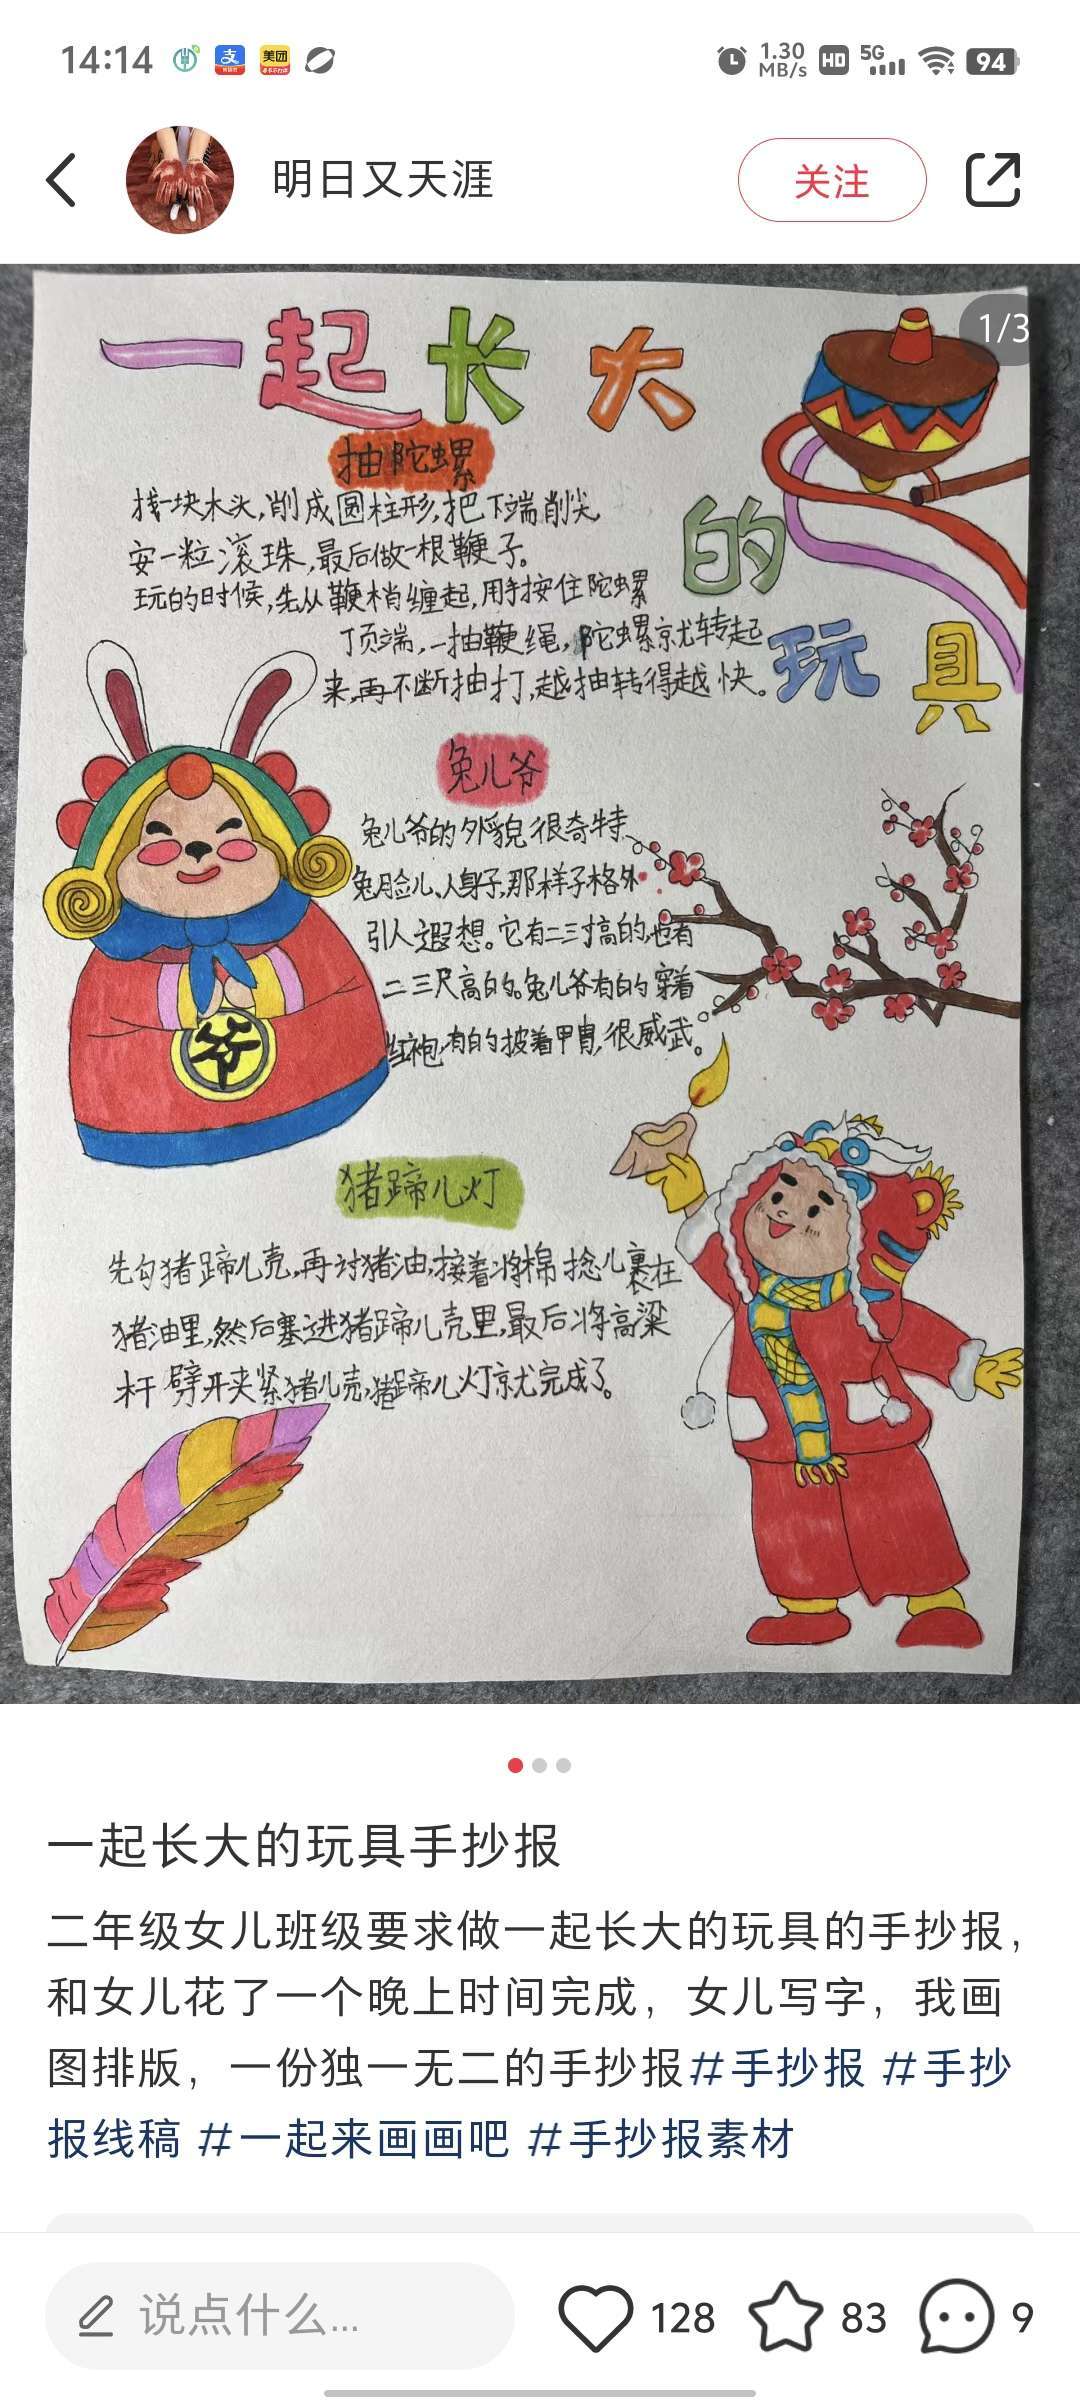 14:14
支
美团
1.30
MB/s
HD
5G
94
明日又天涯
关注
1/3
一起长大
的
玩具
抽陀螺
找一块木头,削成圆柱形,把下端削尖
安一粒滚珠,最后做一根鞭子。
玩的时候,先从鞭梢缠起,用手按住陀螺
顶端,一抽鞭绳,陀螺就转起
来,再不断抽打,越抽转得越快。
兔儿爷
兔儿爷的外貌很奇特
兔脸儿,人身子,那样子格外
引人遐想。它有二三寸高的,也有
二三尺高的。兔儿爷有的穿着
红袍,有的披着甲胄,很威武。
爷
猪蹄儿灯
先勾猪蹄儿壳,再讨猪油,接着将棉捻儿裹在
猪油里,然后塞进猪蹄儿壳里,最后将高梁
杆劈开夹紧猪儿壳,猪蹄儿灯就完成了。
一起长大的玩具手抄报
二年级女儿班级要求做一起长大的玩具的手抄报，
和女儿花了一个晚上时间完成，女儿写字，我画
图排版，一份独一无二的手抄报#手抄报 #手抄
报线稿 #一起来画画吧 #手抄报素材
说点什么...
128
83
9